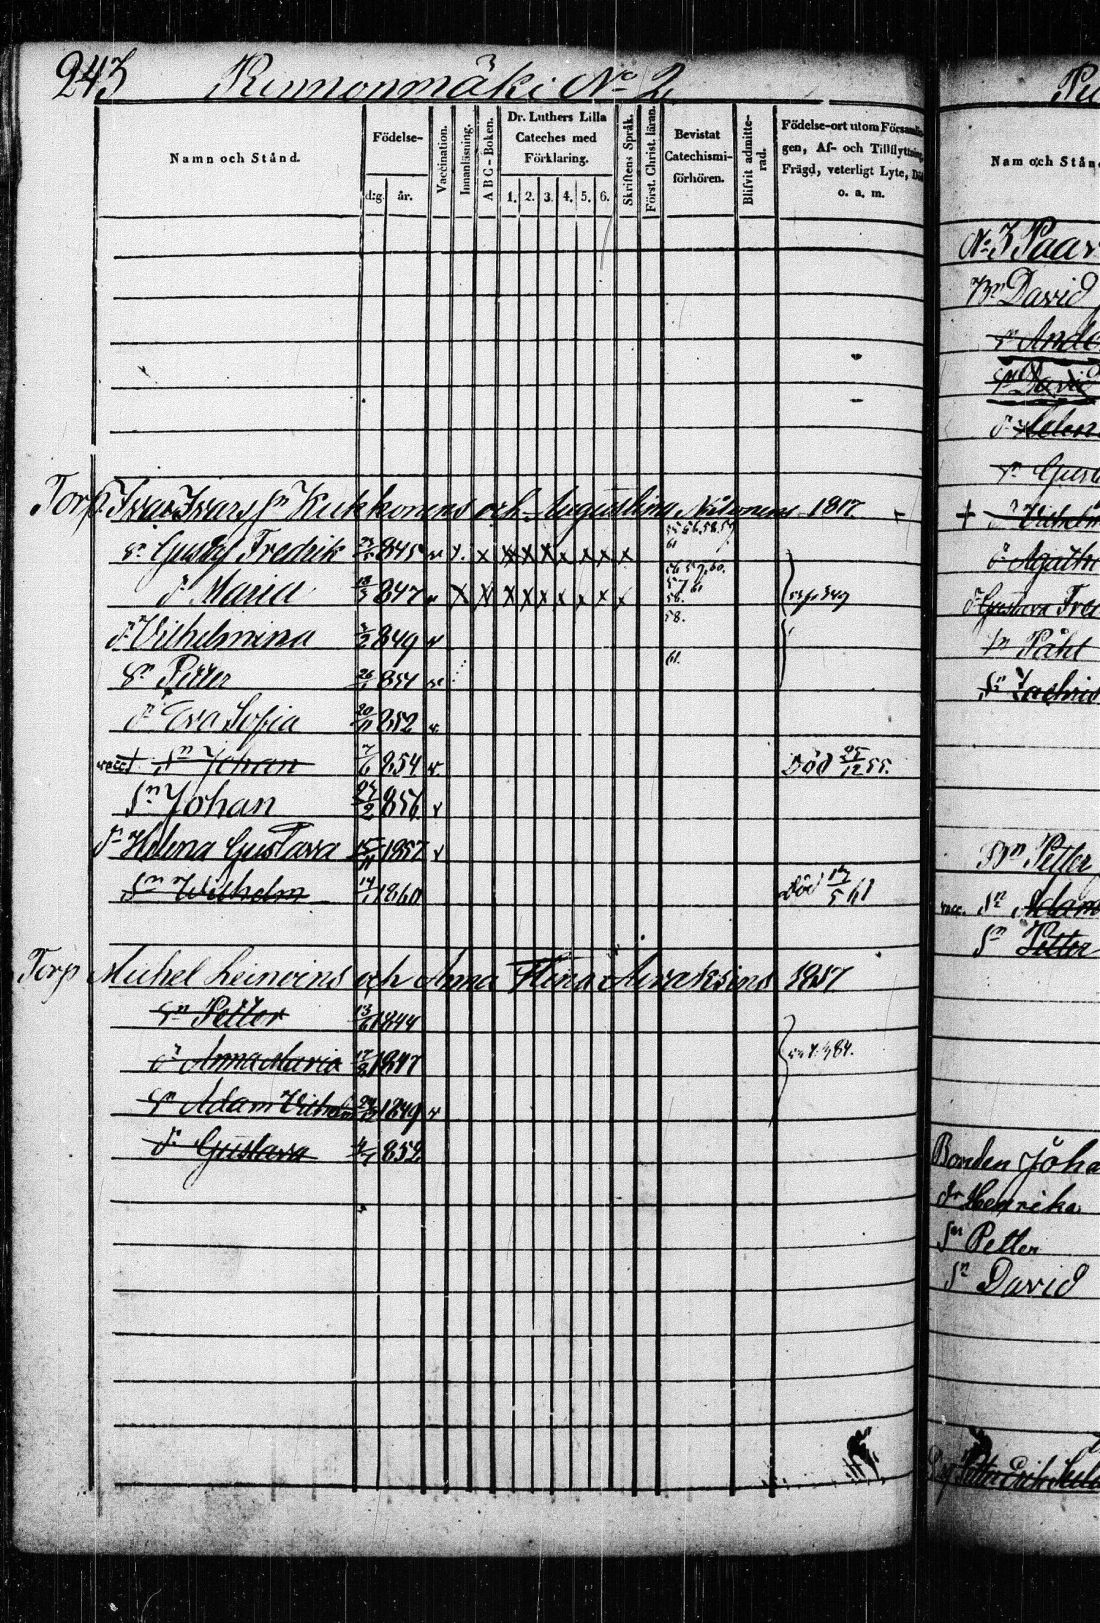 243 Rimonmäki No 2
Namn och Stånd.
Födelse-
d:g. år.
Vaccination.
Innanläsning.
ABC-Boken.
Dr. Luthers Lilla
Cateches med
Förklaring.
1. 2. 3. 4. 5. 6.
Skriftens Språk.
Först. Christ. läran.
Bevistat
Catechismi-
förhören.
Blifvit admitte-
rad.
Födelse-ort utom Församlin
gen, Af- och Tillflyttning,
Frägd, veterligt Lyte, Död
o. a. m.
Torp. Ivar Ivars Sn Kukkonens och Augustina 1817
Sn Gustaf Fredrik 845 v x. x x x x x x x x x 55 56. 58. 59 61
d. Maria 847 v x x x x x x x x x x 56. 59. 60. 57 61 58.
d. Vilhelmina 2 849 v 58.
Sn Petter 26 854 v 61.
d. Eva Sofia 20/11 852 v
vacc. † Sn Johan 7/6 854 v. Död 25/12 55.
Sn Johan 27/2 856 v
d. Helena Gustava 15/11 1857 v
Sn Wilhelm 14/1 1860 Död 17/5 61
Torp Michel Leinoins och Anna Miraksins 1817
Sn Petter 13/6 1844
d. Anna Maria 17/8 1847
Sn Adam Vilhelm 1849 v
d. Gustava 4/7 852
Nam och Stånd
No 3 Paar
Bn David
Sn Ande
Sn David
d. Helen
Sn Gusta
+ d. Vilhelm
d. Agatha
d. Gustava Fred
Sn Påhl
Sn Zachris
Bn Petter
vacc. Sn Adam
Sn Petter
Bonden Joha
dr Henrika
Sn Petter
Sn David
Petter Erik